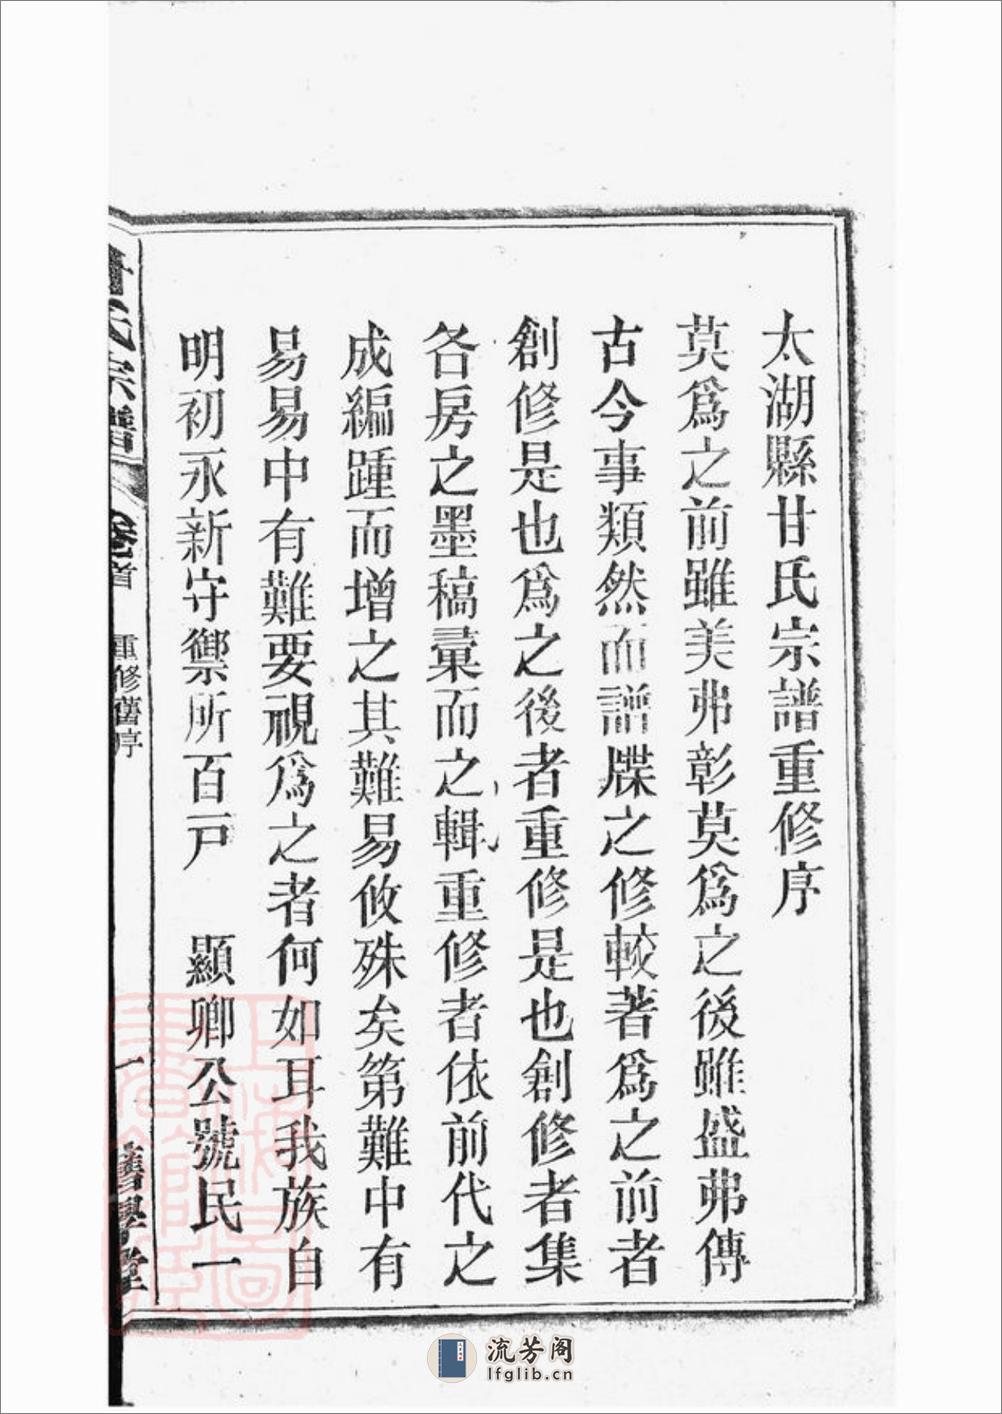 太湖縣甘氏宗譜重修序
莫爲之前雖美弗彰莫爲之後雖盛弗傳
古今事類然而譜牒之修較著爲之前者
創修是也爲之後者重修是也創修者集
各房之墨稿彙而之輯重修者依前代之
成編踵而增之其難易攸殊矣第難中有
易易中有難要視爲之者何如耳我族自
明初永新守禦所百戸 顯卿公號民一
氏宗譜 卷首 重修舊序 一 學堂
流芳阁
lfglib.cn